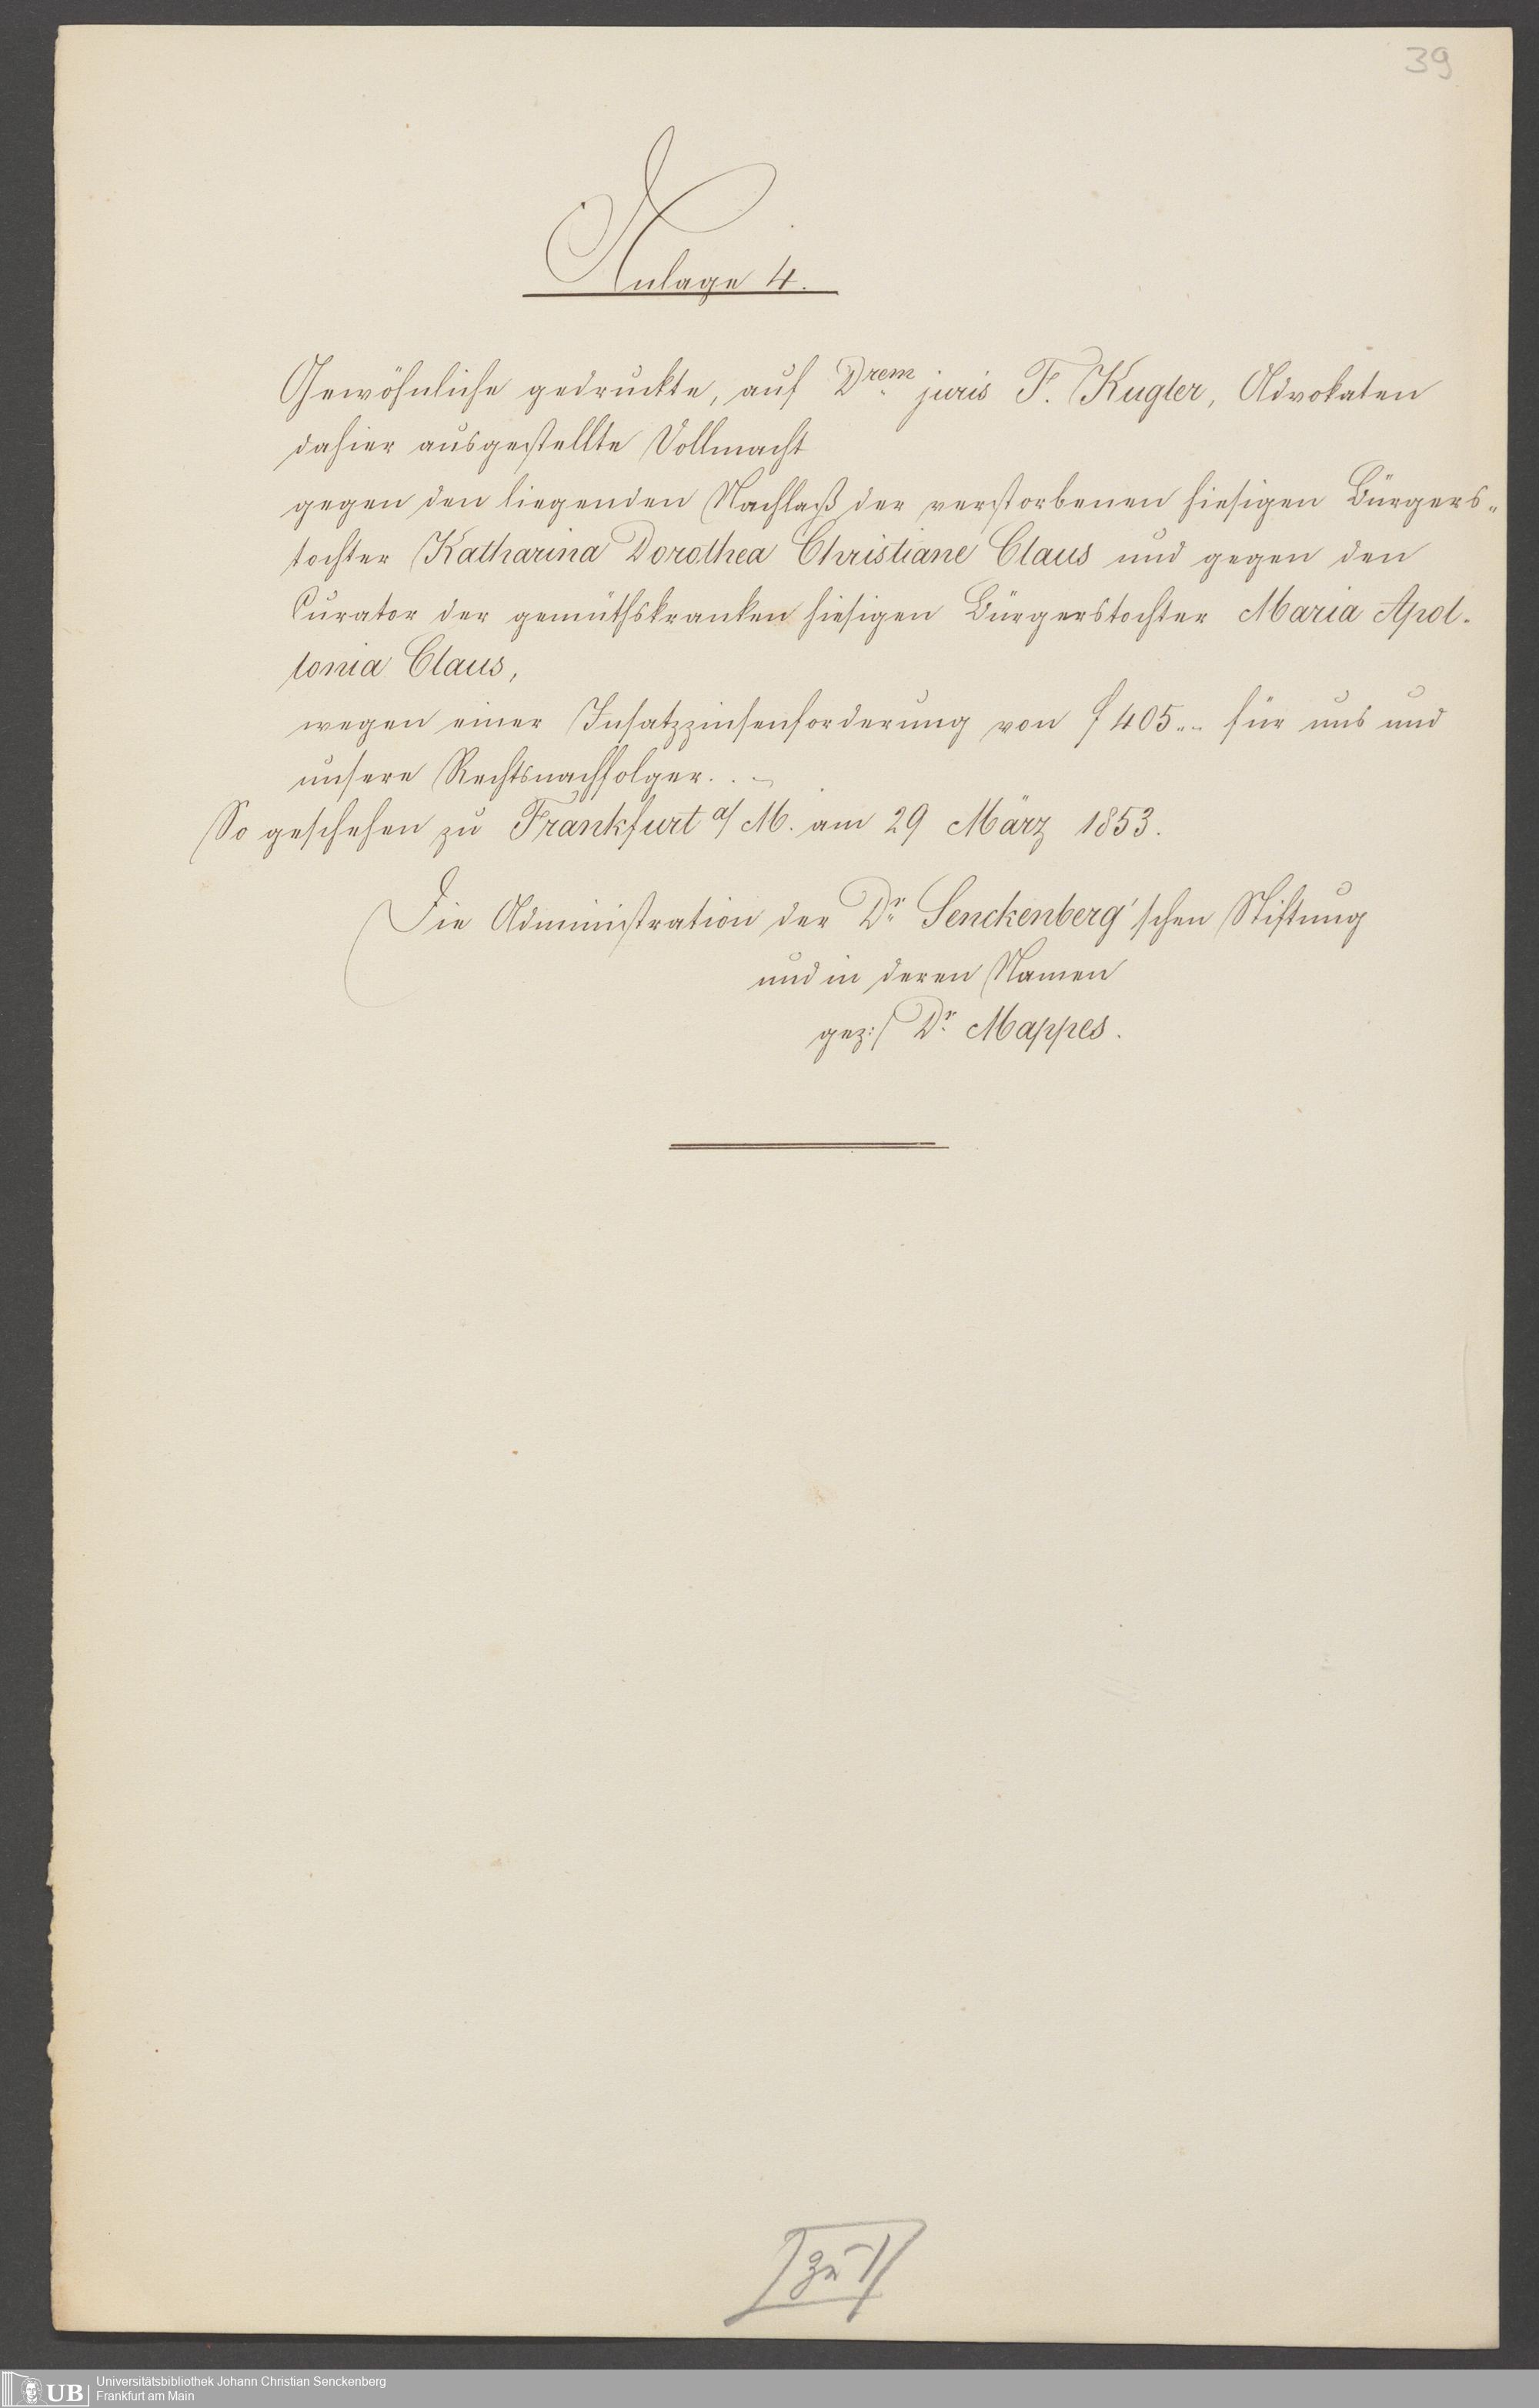 39
Anlage 4.
Gewöhnliche gedruckte, auf Drem juris F. Kugler, Advokaten
dahier ausgestellte Vollmacht
gegen den liegenden Nachlaß der verstorbenen hiesigen Bürgers-
tochter Katharina Dorothea Christiane Claus und gegen den
Curator der gemüthskranken hiesigen Bürgerstochter Maria Apol-
lonia Claus,
wegen einer Insatzzinsenforderung von f 405.- für uns und
unsere Rechtsnachfolger. . -
So geschehen zu Frankfurt a/M. am 29 März 1853.
Die Administration der Dr. Senckenberg'schen Stiftung
und in deren Namen
gez:/ Dr. Mappes.
zu 1
UB
Universitätsbibliothek Johann Christian Senckenberg
Frankfurt am Main